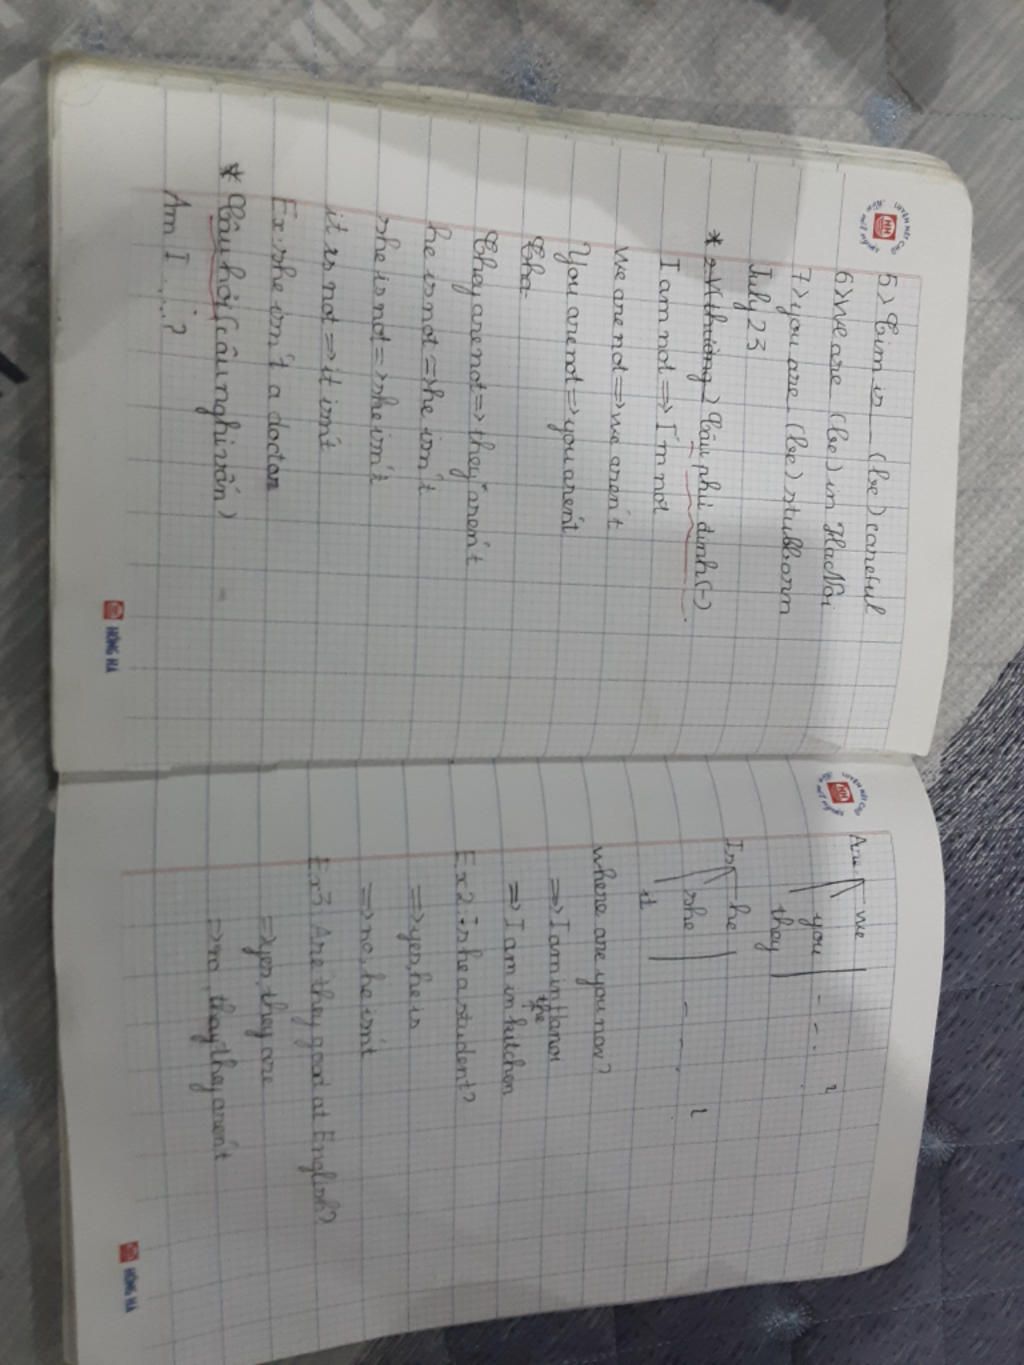 5) Tim is __ (be) careful
6) We are (be) in Ha Noi
7) you are (be) stubborn
July 23
* Câu phủ định (-)
I am not => I'm not
We are not => we aren't
You are not => you aren't
Tha
They are not => they aren't
he is not => he isn't
she is not => she isn't
it is not => it isn't
Ex: she isn't a doctor
* Câu hỏi (câu nghi vấn)
Am I ....?
HỒNG HÀ
Are we
you - - - ?
they
Is he
she - - - ?
it
where are you now?
=> I am in
the
=> I am in kitchen
Ex2: is he a student?
=> yes, he is
=> no, he isn't
Ex3: Are they good at English?
=> yes, they are
=> no, they they aren't
HỒNG HÀ